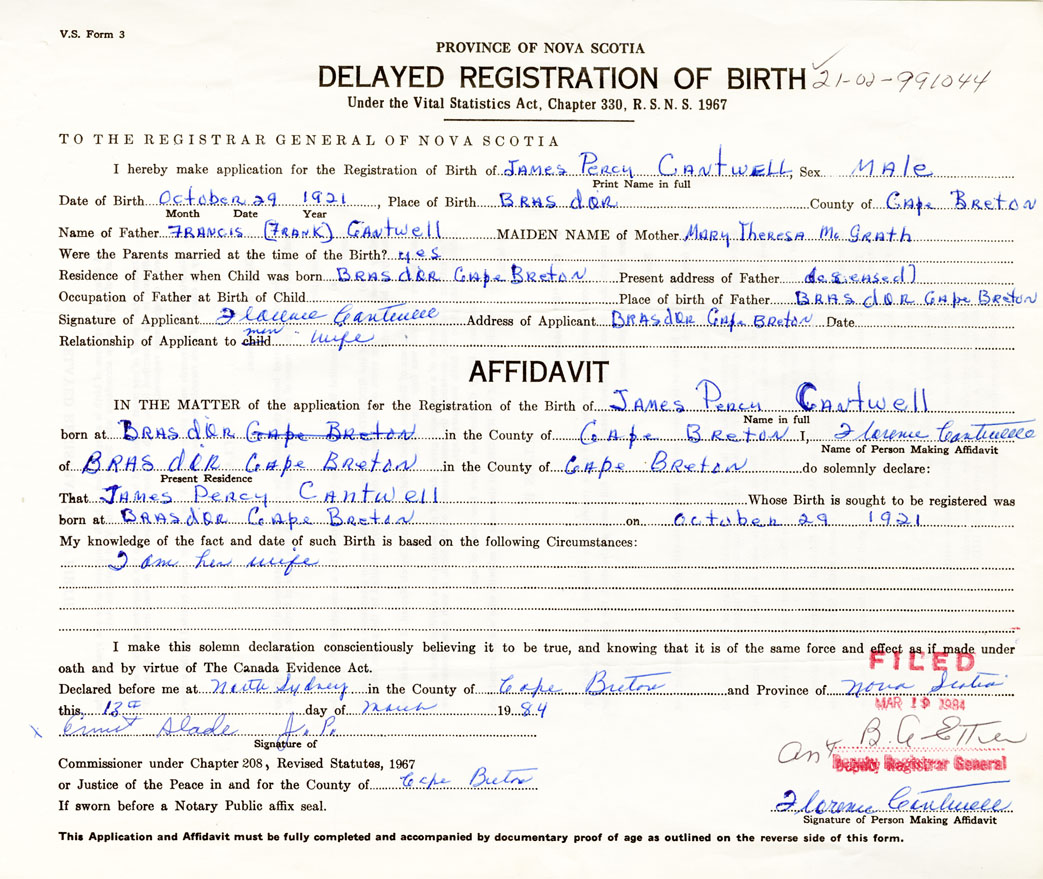 V.S. Form 3
PROVINCE OF NOVA SCOTIA
DELAYED REGISTRATION OF BIRTH 21-02-991044
Under the Vital Statistics Act, Chapter 330, R.S.N.S. 1967
TO THE REGISTRAR GENERAL OF NOVA SCOTIA
I hereby make application for the Registration of Birth of James Percy Cantwell, Sex Male
Print Name in full
Date of Birth October 29 1921, Place of Birth Bras d'Or County of Cape Breton
Month Date Year
Name of Father Francis (Frank) Cantwell MAIDEN NAME of Mother Mary Theresa McGrath
Were the Parents married at the time of the Birth? yes
Residence of Father when Child was born Bras d'Or Cape Breton Present address of Father
Occupation of Father at Birth of Child Place of birth of Father Bras d'Or Cape Breton
Signature of Applicant Florence Cantwell Address of Applicant Bras d'Or Cape Breton Date
Relationship of Applicant to child man wife
AFFIDAVIT
IN THE MATTER of the application for the Registration of the Birth of James Percy Cantwell
Name in full
born at Bras d'Or Cape Breton in the County of Cape Breton I, Florence Cantwell
Name of Person Making Affidavit
of Bras d'Or Cape Breton in the County of Cape Breton do solemnly declare:
Present Residence
That James Percy Cantwell Whose Birth is sought to be registered was
born at Bras d'Or Cape Breton on October 29 1921
My knowledge of the fact and date of such Birth is based on the following Circumstances:
I am her wife
I make this solemn declaration conscientiously believing it to be true, and knowing that it is of the same force and effect as if made under
oath and by virtue of The Canada Evidence Act.
FILED
Declared before me at North Sydney in the County of Cape Breton and Province of Nova Scotia
this 13th day of March 1984
MAR 19 1984
Ernest Slade J.P.
Signature of
B A Etter
Commissioner under Chapter 208, Revised Statutes, 1967
Deputy Registrar General
or Justice of the Peace in and for the County of Cape Breton
If sworn before a Notary Public affix seal.
Florence Cantwell
Signature of Person Making Affidavit
This Application and Affidavit must be fully completed and accompanied by documentary proof of age as outlined on the reverse side of this form.